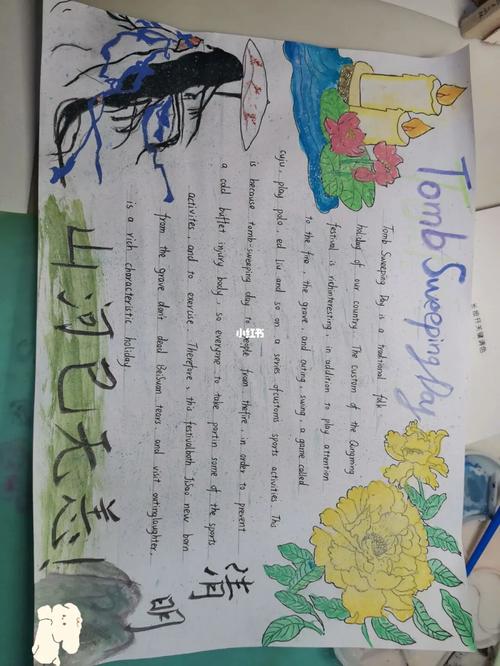 Tomb Sweeping Day
Tomb Sweeping Day is a traditional folk
holiday of our country. The custom of the Qingming
festival is richinteresting, in addition to play attention
to the fire, the grave, and outing, swing, a game called
cuju, play polo, ed Liu and so on a series ofcustoms sports activities. This
is because tomb-sweeping day to people from thefire, in order to prevent
a odd buffet injury body, so everyone to take partin some of the sports
activites, and to exercise. Therefore, this festivalboth new born
from the grave don't dead BeiSuan tears, and visit outinglaughter,
is a rich characteristic holiday
清明
山河已无恙!
小红书